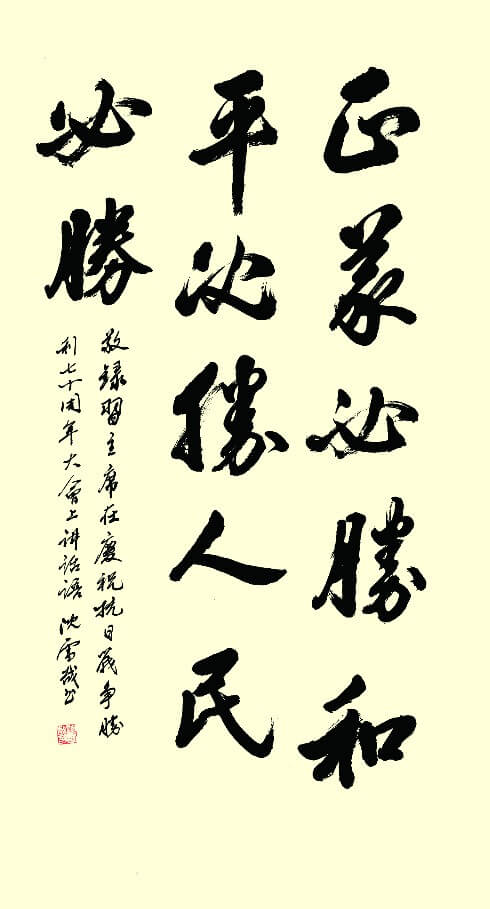 正義必勝和
平必勝人民
必勝
敬録習主席在慶祝抗日战争胜
利七十周年大會上讲话语 沈雷书